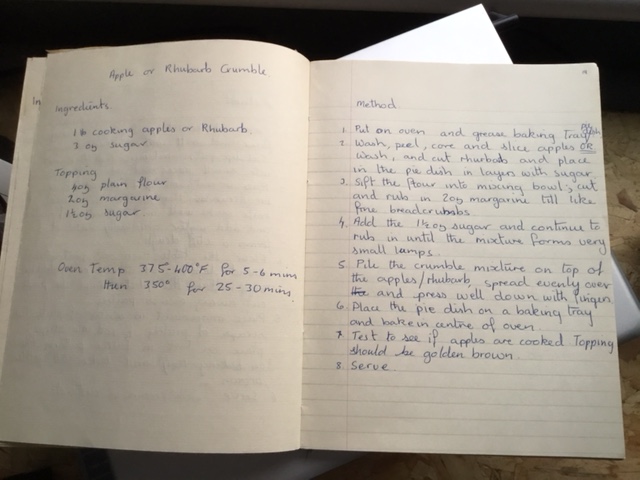 Apple or Rhubarb Crumble
Ingredients.
1 lb cooking apples or Rhubarb.
3 oz sugar
Topping
4oz plain flour
2oz margarine
1½oz sugar.
Oven Temp 375-400°F for 5-6 mins
then 350° for 25-30 mins.
Method
1. Put on oven and grease baking tray
2. Wash, peel, core and slice apples OR
wash, and cut rhubarb and place
in the pie dish in layers with sugar.
3. Sift the flour into mixing bowl, cut
and rub in 2oz margarine till like
fine breadcrumbs.
4. Add the 1½oz sugar and continue to
rub in until the mixture forms very
small lamps.
5. Pile the crumble mixture on top of
the apples/rhubarb, spread evenly over
and press well down with finger.
6. Place the pie dish on a baking tray
and bake in centre of oven.
7. Test to see if apples are cooked Topping
should be golden brown.
8. Serve.